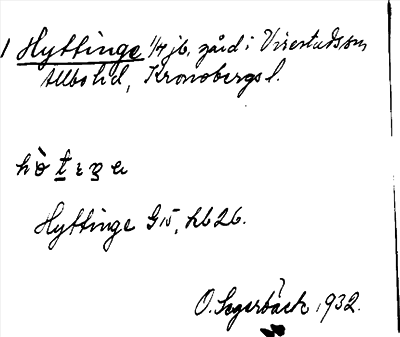 1 Hyttinge 1/4 jb. gård i Virestads sn
Allbo hd, Kronobergs l.
Hyttinge G15, hb 26.
O. Segerbäck, 1932.